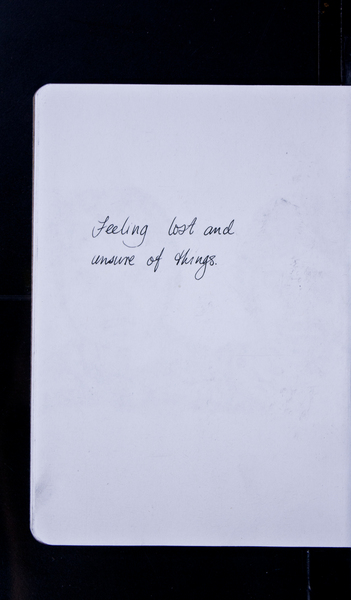 Feeling lost and
unsure of things.